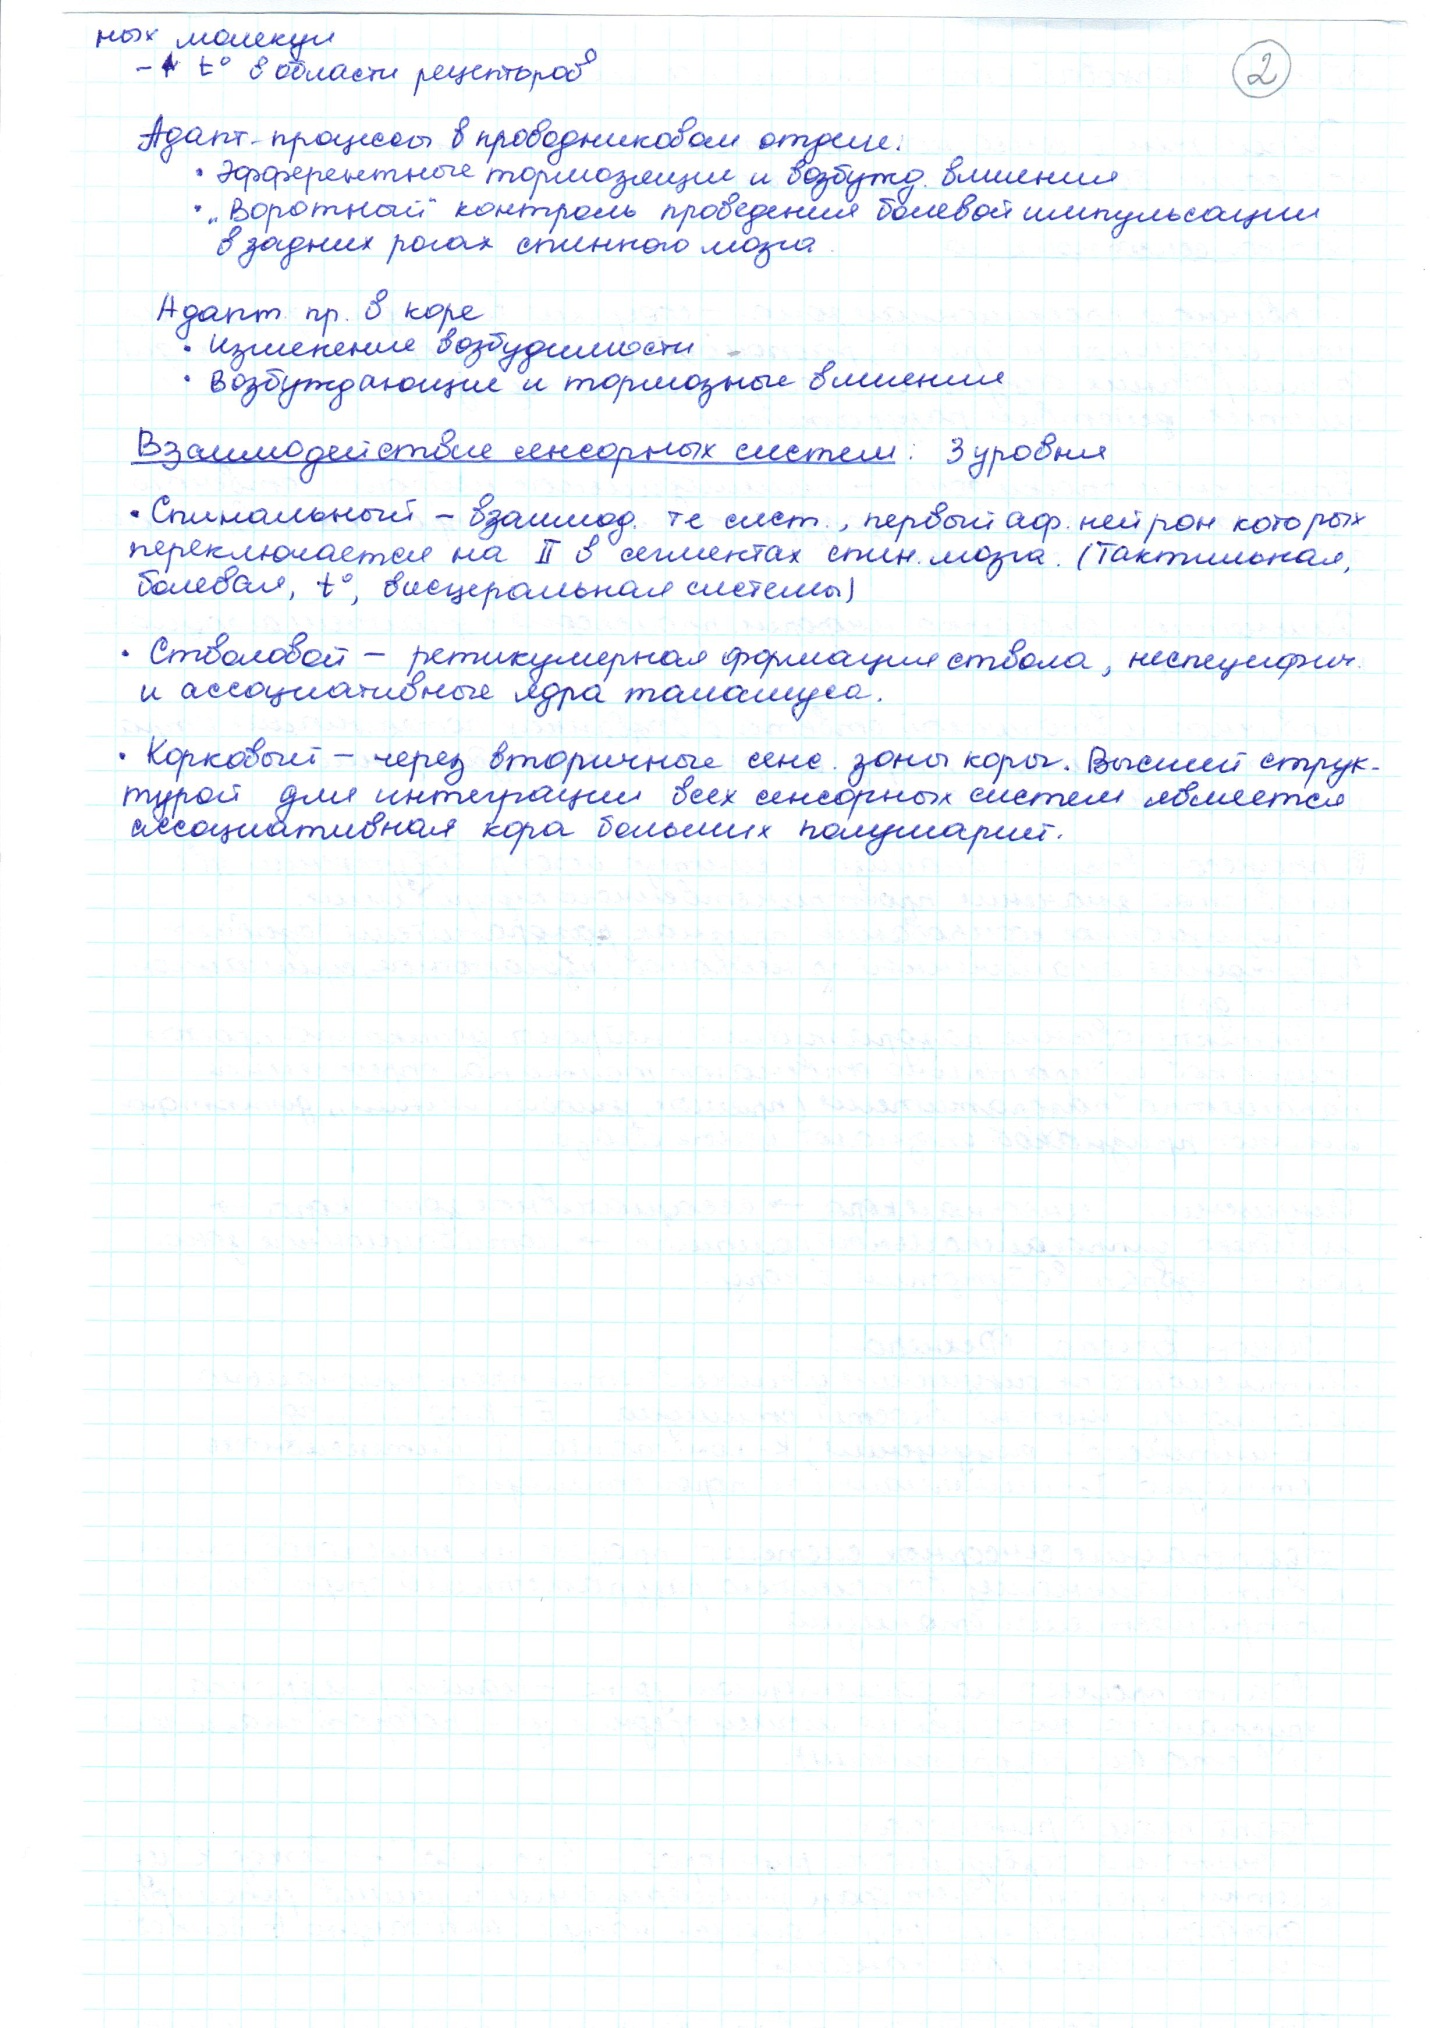 ных молекул
2
- ↑ t° в области рецепторов
Адапт. процессы в проводниковом отделе:
• Эфферентные тормозящие и возбужд. влияния
• „Воротный" контроль проведения болевой импульсации
в задних рогах спинного мозга.
Адапт. пр. в коре
• Изменение возбудимости
• Возбуждающие и тормозные влияния
Взаимодействие сенсорных систем: 3 уровня
• Спинальный – взаимод. те сист., первый аф. нейрон которых
переключается на II в сегментах спин. мозга. (Тактильная,
болевая, t°, висцеральная системы)
• Стволовой – ретикулярная формация ствола, неспецифич.
и ассоциативные ядра таламуса.
• Корковый – через вторичные сенс. зоны коры. Высшей струк-
турой для интеграции всех сенсорных систем является
ассоциативная кора больших полушарий.